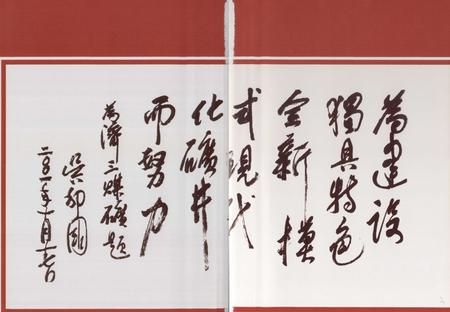 为建设
独具特色
全新模
式现代
化矿井
而努力
为济三煤矿题
吴邦国
二〇〇一年一月十七日